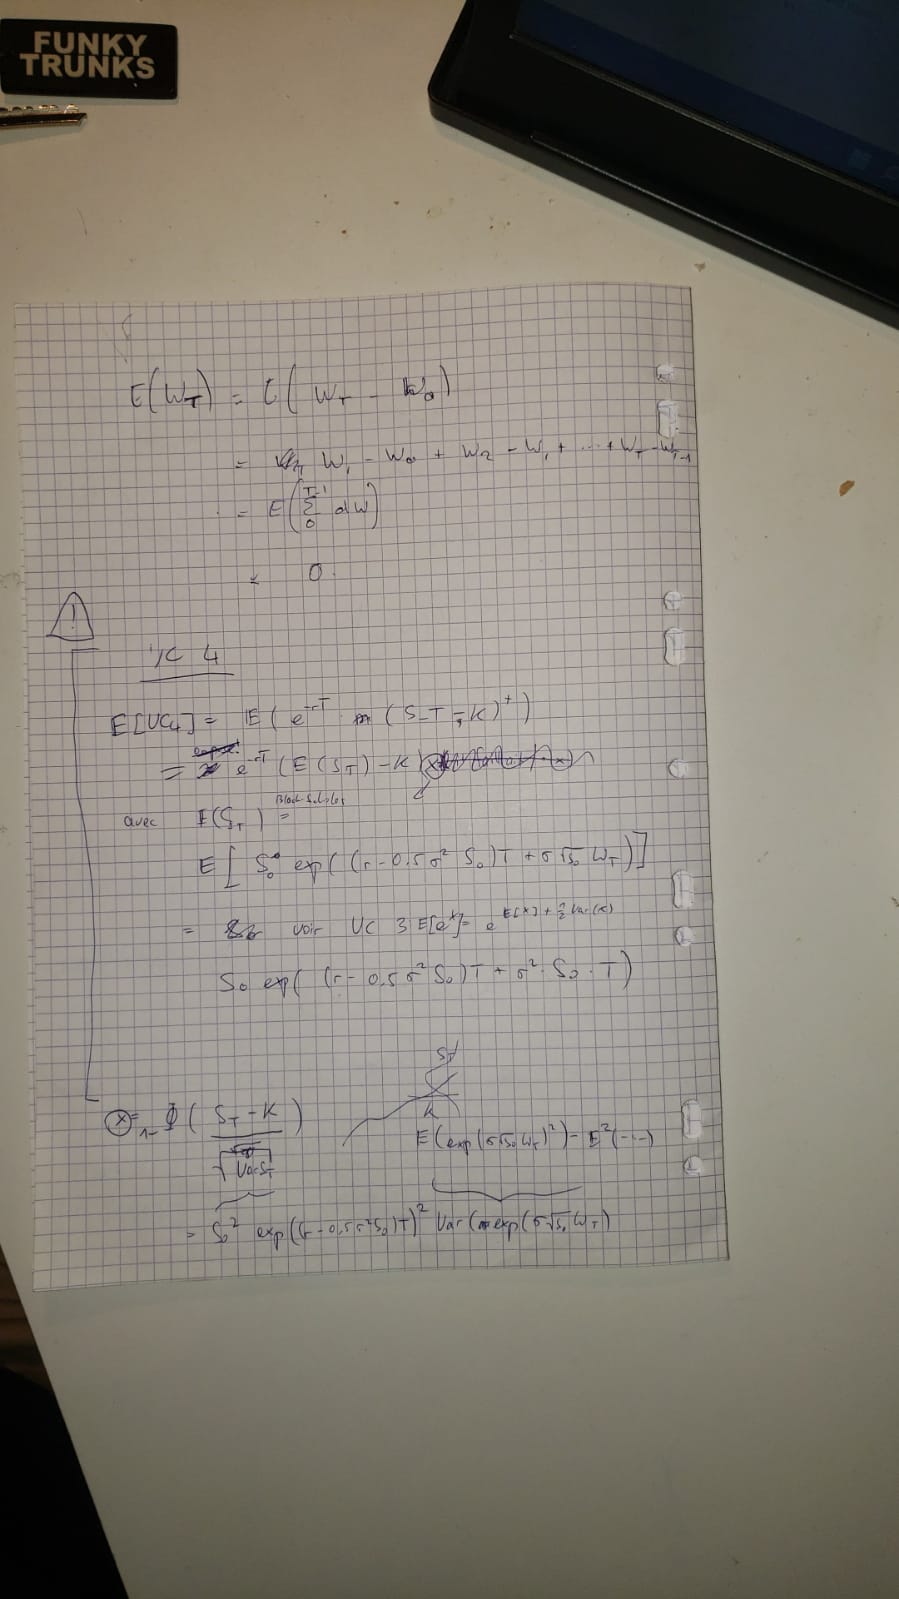 FUNKY
TRUNKS
E(W_T) = E( W_T - W_0 )
= W_1 - W_0 + W_2 - W_1 + ... + W_T - W_{T-1}
= E( Σ_0^{T-1} dW )
= 0.
!
VC 4
E[VC_4] = E( e^{-rT} ( S_T - K )^+ )
= e^{-rT} ( E(S_T) - K ) ⊗
avec E(S_T) =
E[ S_0 exp( (r - 0.5 σ² S_0)T + σ√S_0 W_T ) ]
= voir VC 3 E[e^x] = e^{E[x] + ½ Var(x)}
S_0 exp( (r - 0.5 σ² S_0)T + σ² · S_0 · T )
K
⊗ = 1- Φ( (S_T - K) / √(Var S_T) )
E(exp(σ√S_0 W_T)²) - E²(---)
= S_0² exp((r - 0.5σ²S_0)T)² Var( exp(σ√S_0 W_T)